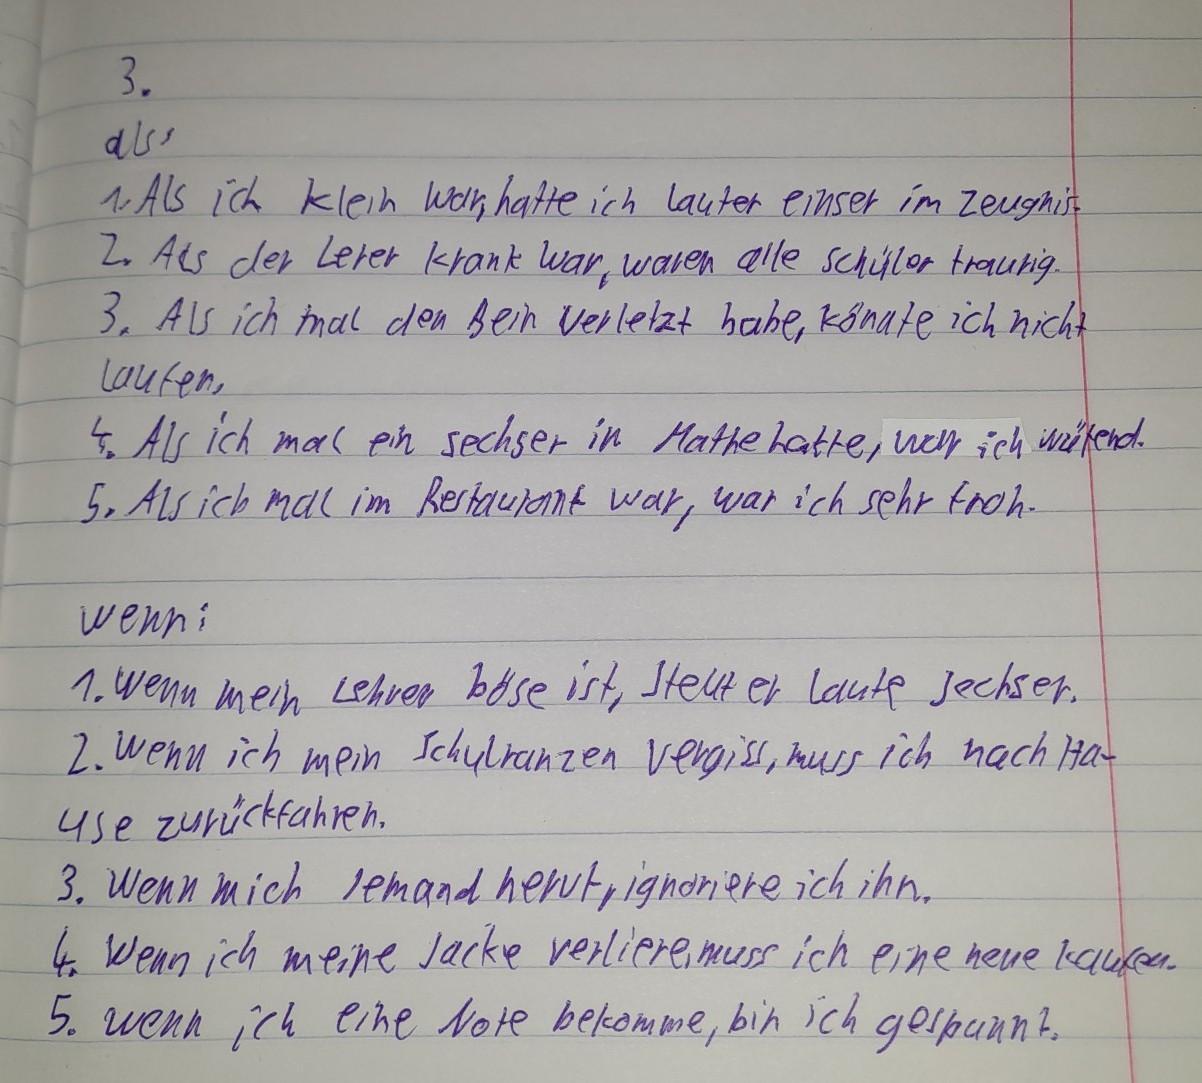 3.
als:
1. Als ich klein war, hatte ich lauter einser im Zeugnis.
2. Als der Lerer krank war, waren alle schüler traurig.
3. Als ich mal den Bein verletzt habe, könnte ich nicht
laufen.
4. Als ich mal ein sechser in Mathe hatte, war ich wütend.
5. Als ich mal im Restaurant war, war ich sehr froh.
wenn:
1. Wenn mein Lehrer böse ist, stellt er laute sechser.
2. Wenn ich mein Schulranzen vergiss, muss ich nach Ha-
use zurückfahren.
3. Wenn mich jemand nervt, ignoriere ich ihn.
4. Wenn ich meine Jacke verliere, muss ich eine neue kaufen.
5. wenn ich eine Note bekomme, bin ich gespannt.